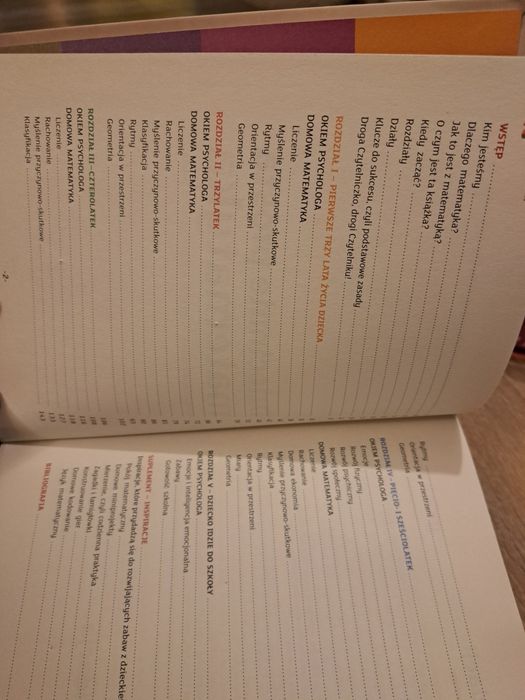 WSTĘP
Kim jesteśmy
Dlaczego matematyka?
Jak to jest z matematyką?
O czym jest ta książka?
Kiedy zacząć?
Rozdziały
Działy
Klucze do sukcesu, czyli podstawowe zasady
Droga Czytelniczko, drogi Czytelniku!
ROZDZIAŁ I – PIERWSZE TRZY LATA ŻYCIA DZIECKA
OKIEM PSYCHOLOGA
DOMOWA MATEMATYKA
Liczenie
Myślenie przyczynowo-skutkowe
Rytmy
Orientacja w przestrzeni
Geometria
ROZDZIAŁ II – TRZYLATEK
OKIEM PSYCHOLOGA
DOMOWA MATEMATYKA
Liczenie
Rachowanie
Myślenie przyczynowo-skutkowe
Klasyfikacja
Rytmy
Orientacja w przestrzeni
Geometria
ROZDZIAŁ III – CZTEROLATEK
OKIEM PSYCHOLOGA
DOMOWA MATEMATYKA
Liczenie
Rachowanie
Myślenie przyczynowo-skutkowe
Klasyfikacja
-2-
Rytmy
Orientacja w przestrzeni
Geometria
ROZDZIAŁ IV – PIĘCIO- I SZEŚCIOLATEK
OKIEM PSYCHOLOGA
Emocje
Rozwój fizyczny
Rozwój psychiczny
Rozwój społeczny
DOMOWA MATEMATYKA
Liczenie
Rachowanie
Domowa ekonomia
Myślenie przyczynowo-skutkowe
Klasyfikacja
Rytmy
Orientacja w przestrzeni
Miary
Geometria
ROZDZIAŁ V – DZIECKO IDZIE DO SZKOŁY
OKIEM PSYCHOLOGA
Emocje i inteligencja emocjonalna
Zabawy
Gotowość szkolna
SUPLEMENT – INSPIRACJE
Inspiracje, które przydadzą się do rozwijających zabaw z dzieckie
Pokój matematyczny
Domowe miniprojekty
Mierzenie, czyli codzienna praktyka
Zagadki i łamigłówki
Konstruowanie gier
Domowe kodowanie
Język matematyczny
BIBLIOGRAFIA